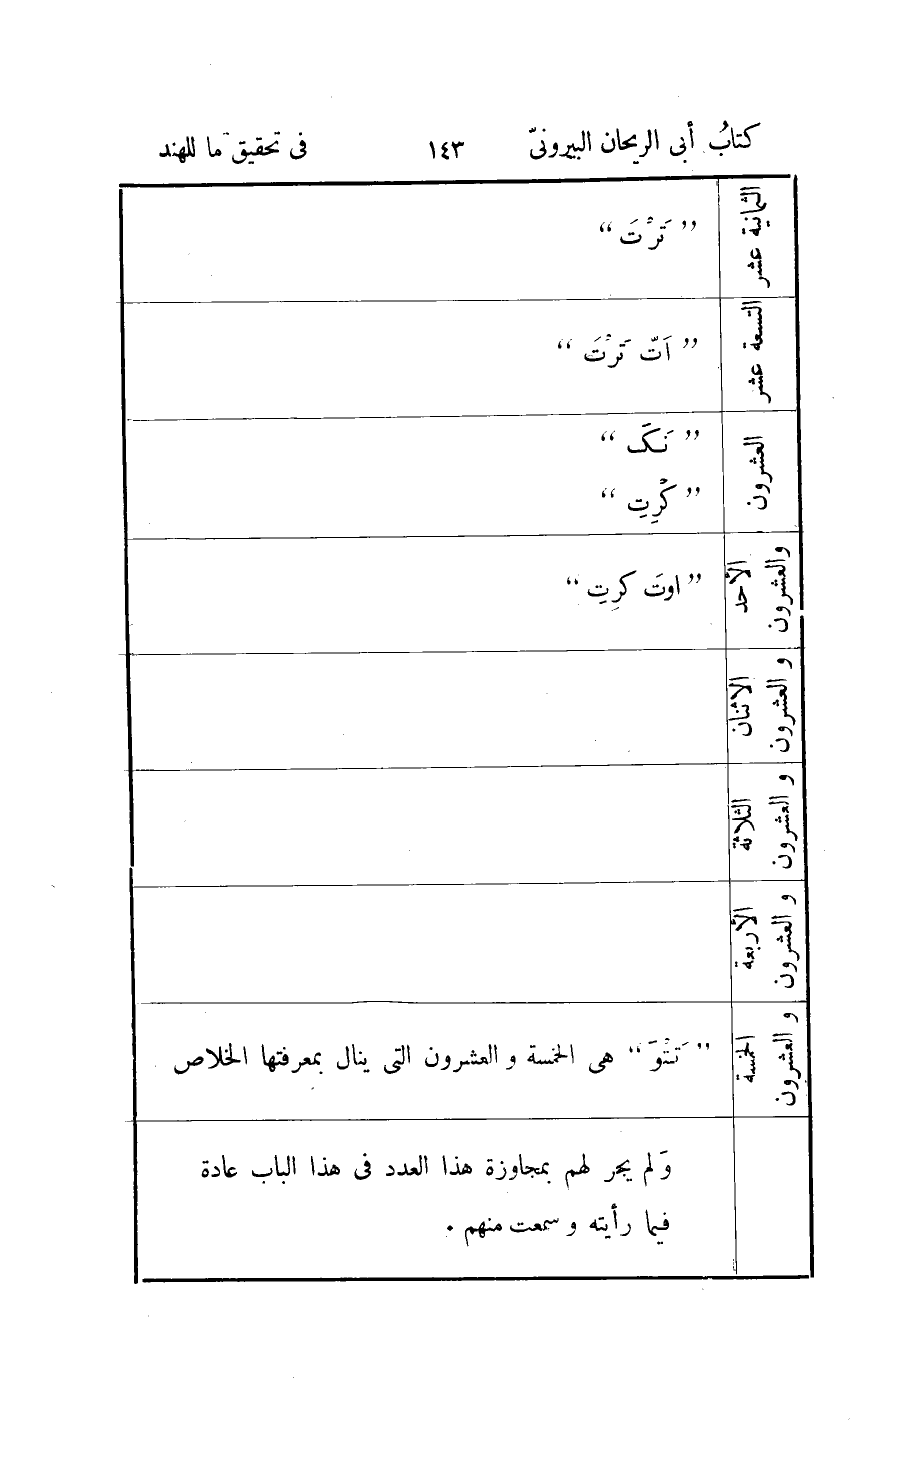 كتابُ أبى الريحان البيرونىّ ١٤٣ فى تحقيق ما للهند
الثمانية عشر
” تَرْتَ “
التسعة عشر
” اَتّ تَرْتَ “
العشرون
” نَكَ “
” كْرِتِ “
الأحد والعشرون
” اوتَ كرِتِ “
الاثنان و العشرون
الثلاثة و العشرون
الأربعة و العشرون
الخمسة و العشرون
” تَتْوَ “ هى الخمسة و العشرون التى ينال بمعرفتها الخلاص
وَلم يجر لهم بمجاوزة هذا العدد فى هذا الباب عادة
فيما رأيته و سمعت منهم .